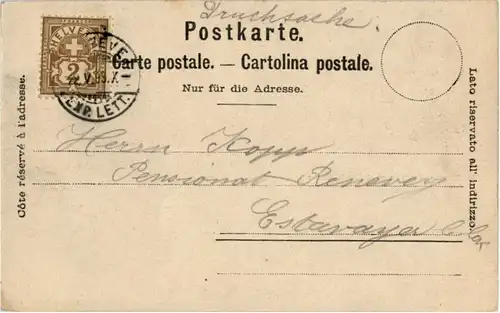 Drucksache
Postkarte.
Carte postale. — Cartolina postale.
Nur für die Adresse.
Côté réservé à l'adresse.
Lato riservato all' indirizzo.
HELVETIA
FRANCO
2
GENÈVE
22.V.99.X
EXP. LETT.
Herrn Kopp
Pensionat Renevey
Estavayer